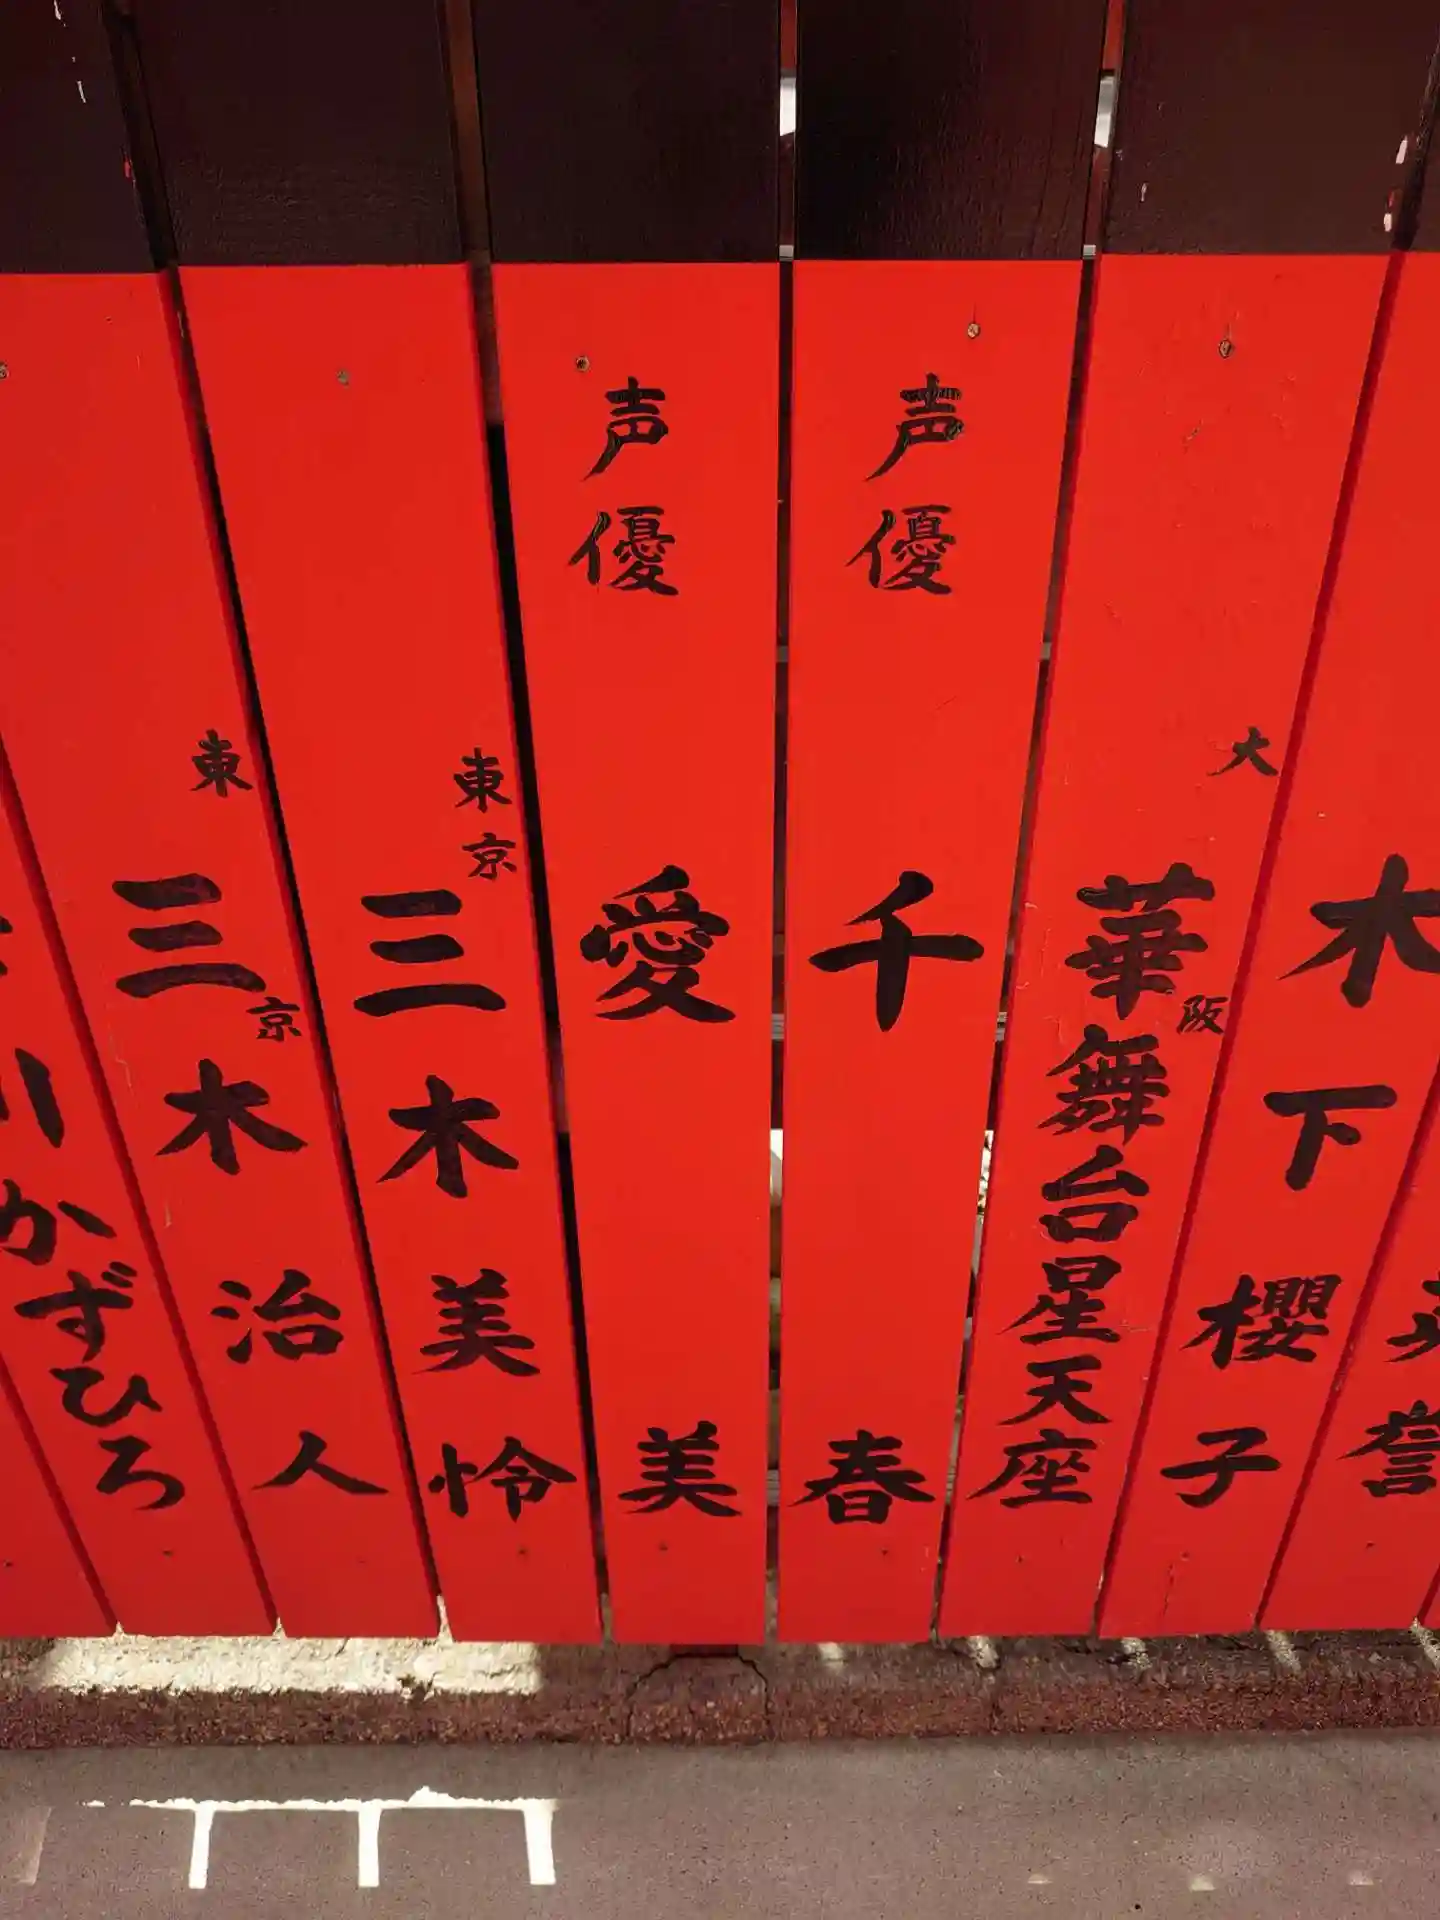 誉
木下櫻子
大阪
華舞台星天座
声優
千春
声優
愛美
東京
三木美怜
東京
三木治人
川かずひろ